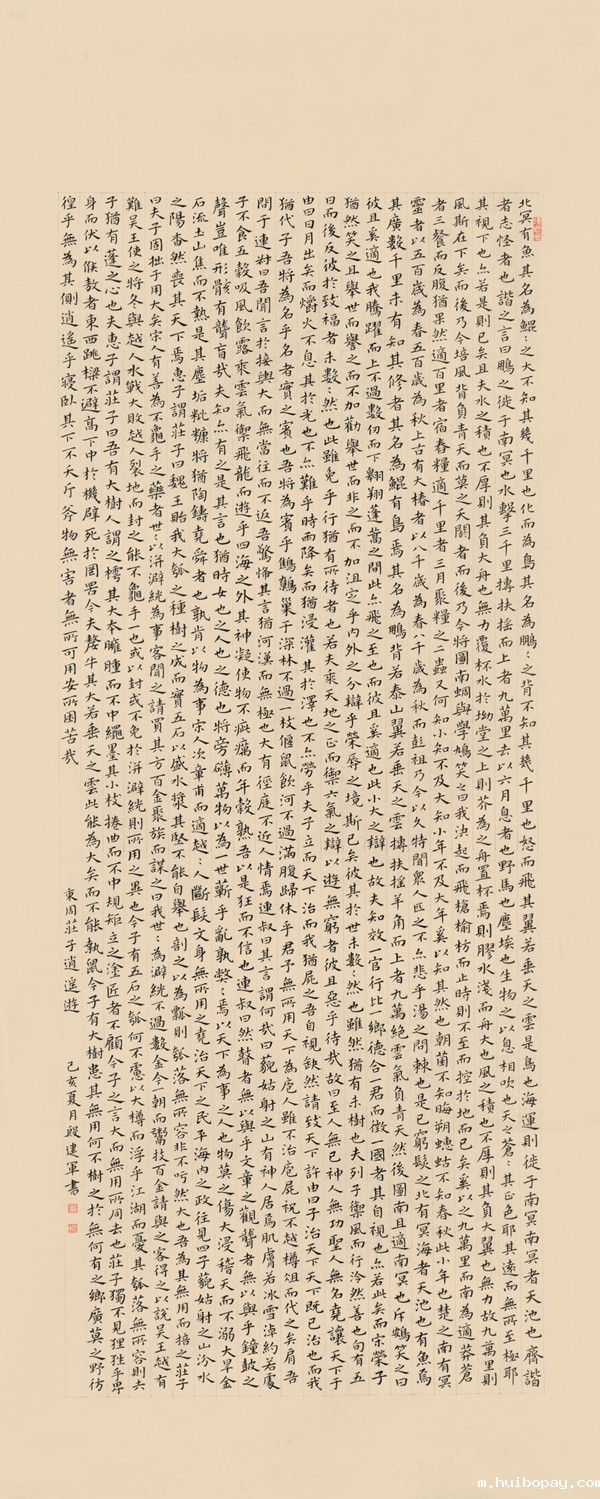 北冥有魚其名為鯤:之大不知其幾千里也化而為鳥其名為鵬:之背不知其幾千里也怒而飛其翼若垂天之雲是鳥也海運則徙于南冥南冥者天池也齊諧
者志怪者也諧之言曰鵬之徙于南冥也水擊三千里摶扶搖而上者九萬里去以六月息者也野馬也塵埃也生物之以息相吹也天之蒼:其正色耶其遠而無所至極耶
其視下也亦若是則已矣且夫水之積也不厚則其負大舟也無力覆杯水於坳堂之上則芥為之舟置杯焉則膠水淺而舟大也風之積也不厚則其負大翼也無力故九萬里則
風斯在下矣而後乃今培風背負青天而莫之夭閼者而後乃今將圖南蜩與學鳩笑之曰我決起而飛槍榆枋而止時則不至而控於地而已矣奚以之九萬里而南為適莽蒼
者三餐而反腹猶果然適百里者宿舂糧適千里者三月聚糧之二蟲又何知小知不及大知小年不及大年奚以知其然也朝菌不知晦朔蟪蛄不知春秋此小年也楚之南有冥
靈者以五百歲為春五百歲為秋上古有大椿者以八千歲為春八千歲為秋而彭祖乃今以久特聞眾人匹之不亦悲乎湯之問棘也是已窮髮之北有冥海者天池也有魚焉
其廣數千里未有知其修者其名為鯤有鳥焉其名為鵬背若泰山翼若垂天之雲摶扶搖羊角而上者九萬里絕雲氣負青天然後圖南且適南冥也斥鴳笑之曰
彼且奚適也我騰躍而上不過數仞而下翱翔蓬蒿之間此亦飛之至也而彼且奚適也此小大之辯也故夫知效一官行比一鄉德合一君而徵一國者其自視也亦若此矣而宋榮子
猶然笑之且舉世而譽之而不加勸舉世而非之而不加沮定乎內外之分辯乎榮辱之境斯已矣彼其於世未數:然也雖然猶有未樹也夫列子禦風而行泠然善也旬有五
日而後反彼於致福者未數:然也此雖免乎行猶有所待者也若夫乘天地之正而禦六氣之辯以遊無窮者彼且惡乎待哉故曰至人無己神人無功聖人無名堯讓天下于
由曰日月出矣而爝火不息其於光也不亦難乎時雨降矣而猶浸灌其於澤也不亦勞乎夫子立而天下治而我猶屍之吾自視缺然請致天下許由曰子治天下天下既已治也而我
猶代子吾將為名乎名者實之賓也吾將為賓乎鷦鷯巢于深林不過一枝偃鼠飲河不過滿腹歸休乎君予無所用天下為庖人雖不治庖屍祝不越樽俎而代之矣肩吾
問于連叔曰吾聞言於接輿大而無當往而不返吾驚怖其言猶河漢而無極也大有徑庭不近人情焉連叔曰其言謂何哉曰藐姑射之山有神人居焉肌膚若冰雪淖約若處
子不食五穀吸風飲露乘雲氣禦飛龍而遊乎四海之外其神凝使物不疵癘而年穀熟吾以是狂而不信也連叔曰然瞽者無以與乎文章之觀聾者無以與乎鐘鼓之
聲豈唯形骸有聾盲哉夫知亦有之是其言也猶時女也之人也之德也將旁礴萬物以為一世蘄乎亂孰弊:焉以天下為事之人也物莫之傷大浸稽天而不溺大旱金
石流土山焦而不熱是其塵垢秕糠將猶陶鑄堯舜者也孰肯以物為事宋人次章甫而適越:人斷髮文身無所用之堯治天下之民平海內之政往見四子藐姑射之山汾水
之陽杳然喪其天下焉惠子謂莊子曰魏王貽我大瓠之種樹之成而實五石以盛水漿其堅不能自舉也剖之以為瓢則瓠落無所容非不呺然大也吾為其無用而掊之莊子
曰夫子固拙于用大矣宋人有善為不龜手之藥者世:以洴澼絖為事客聞之請買其方百金聚族而謀之曰我世:為澼絖不過數金今一朝而鬻技百金請與之客得之以說吳王越有
難吳王使之將冬與越人水戰大敗越人裂地而封之能不龜手一也或以封或不免於洴澼絖則所用之異也今子有五石之瓠何不慮以大樽而浮乎江湖而憂其瓠落無所容則夫
子猶有蓬之心也夫惠子謂莊子曰吾有大樹人謂之樗其大本臃腫而不中繩墨其小枝捲曲而不中規矩立之塗匠者不顧今子之言大而無用所同去也莊子獨不見狸狌乎卑
身而伏以候敖者東西跳樑不避高下中於機辟死於罔罟今夫斄牛其大若垂天之雲此能為大矣而不能執鼠今子有大樹患其無用何不樹之於無何有之鄉廣莫之野彷
徨乎無為其側逍遙乎寢臥其下不夭斤斧物無害者無所可用安所困苦哉
東周莊子逍遥遊
己亥夏月殷建軍書
m.huibopay.com